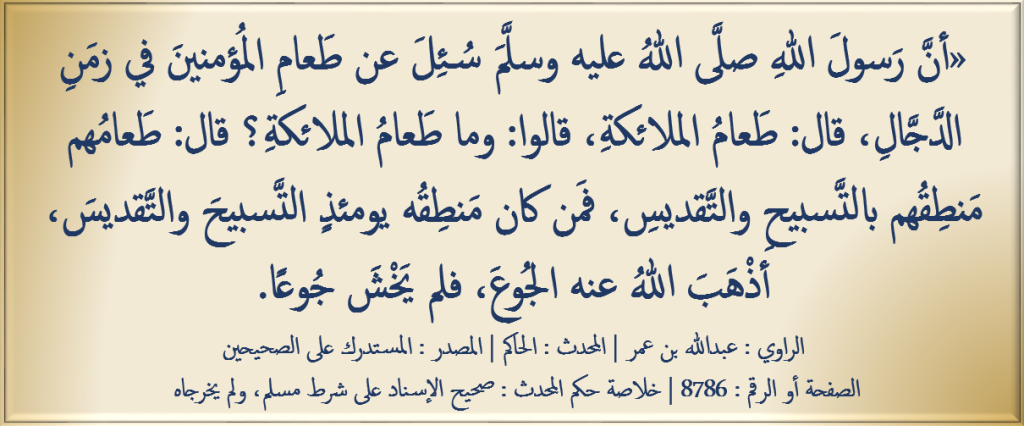 «أنَّ رَسولَ اللهِ صلَّى اللهُ عليه وسلَّمَ سُئِلَ عن طَعامِ المُؤمنينَ في زمَنِ
الدَّجَّالِ، قال: طَعامُ الملائكةِ، قالوا: وما طَعامُ الملائكةِ؟ قال: طَعامُهم
مَنطِقُهم بالتَّسبيحِ والتَّقديسِ، فمَن كان مَنطِقُه يومئذٍ التَّسبيحَ والتَّقديسَ،
أذْهَبَ اللهُ عنه الجُوعَ، فلم يَخْشَ جُوعًا.
الراوي : عبدالله بن عمر | المحدث : الحاكم | المصدر : المستدرك على الصحيحين
الصفحة أو الرقم : 8786 | خلاصة حكم المحدث : صحيح الإسناد على شرط مسلم، ولم يخرجاه